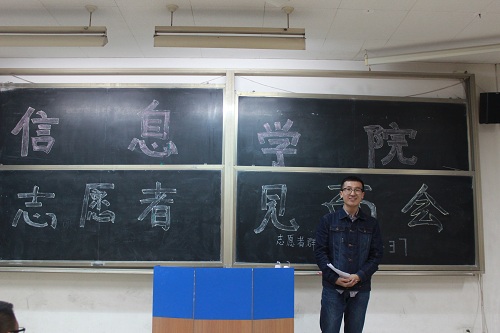 信息学院
志愿者见面会
志愿者群
37